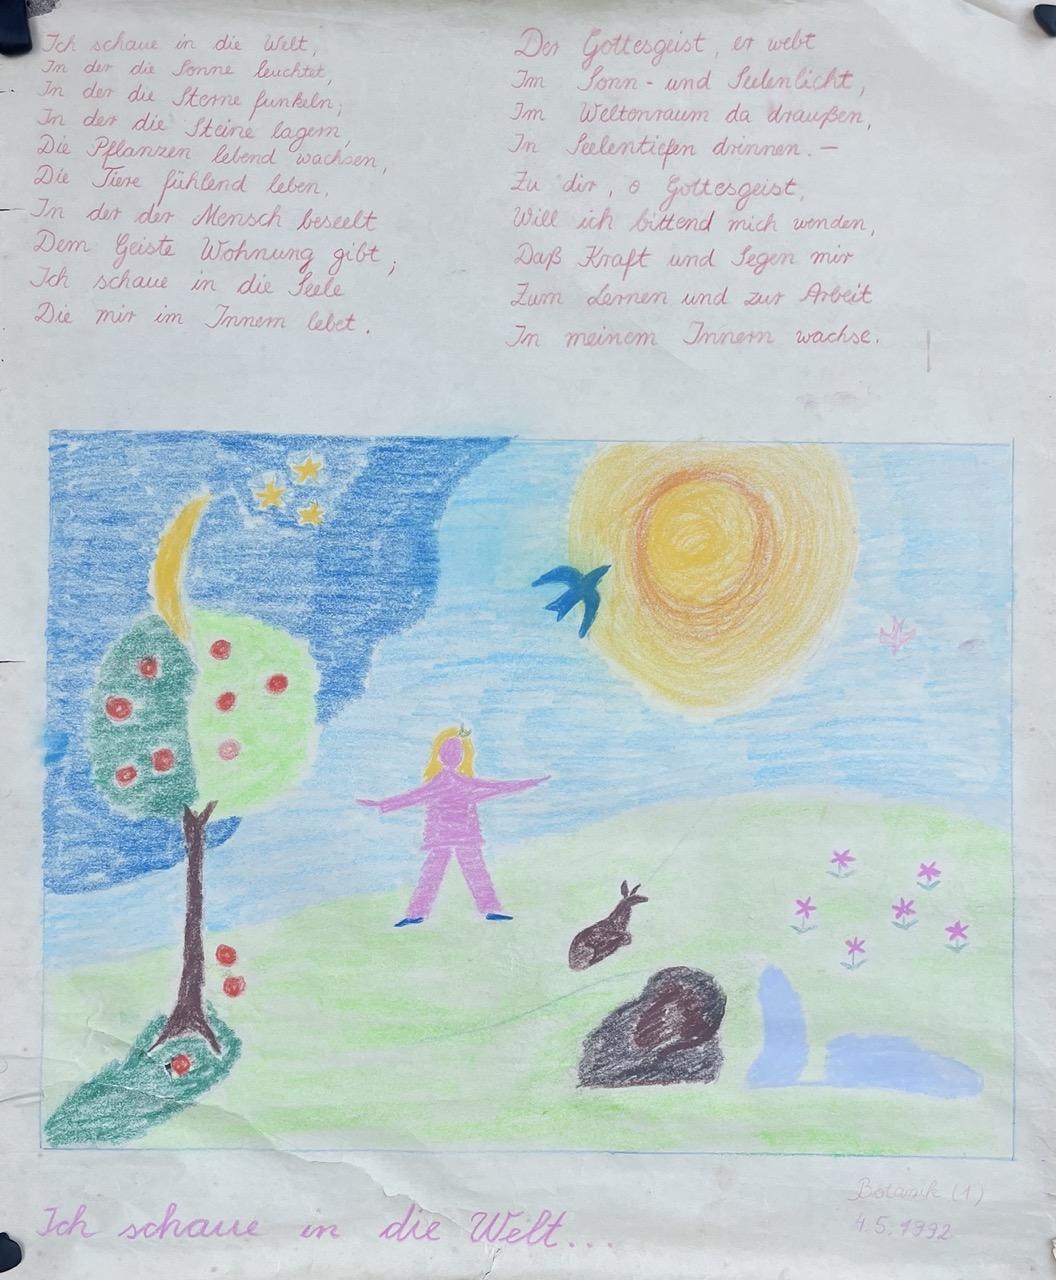 Ich schaue in die Welt,
In der die Sonne leuchtet,
In der die Sterne funkeln;
In der die Steine lagern,
Die Pflanzen lebend wachsen,
Die Tiere fühlend leben,
In der der Mensch beseelt
Dem Geiste Wohnung gibt;
Ich schaue in die Seele
Die mir im Innern lebet.
Der Gottesgeist, er webt
Im Sonn- und Seelenlicht,
Im Weltenraum da draußen,
In Seelentiefen drinnen. —
Zu dir, o Gottesgeist,
Will ich bittend mich wenden,
Daß Kraft und Segen mir
Zum Lernen und zur Arbeit
In meinem Innern wachse.
Ich schaue in die Welt...
Botanik (1)
4.5.1992